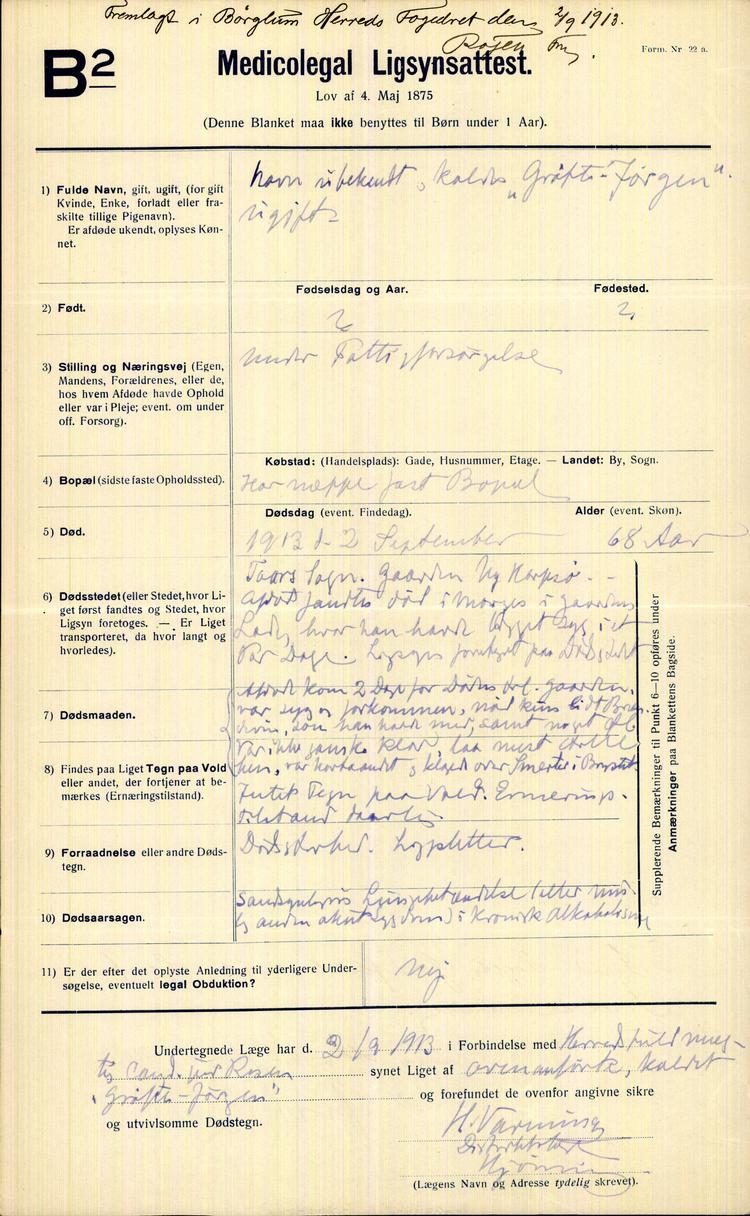 Fremlagt i Børglum Herreds Fogedret den 2/9 1913.
Rosen Fm.
Form. Nr 22 a.
B2
Medicolegal Ligsynsattest.
Lov af 4. Maj 1875
(Denne Blanket maa ikke benyttes til Børn under 1 Aar).
1) Fulde Navn, gift, ugift, (for gift
Kvinde, Enke, forladt eller fra-
skilte tillige Pigenavn).
Er afdøde ukendt, oplyses Køn-
net.
Navn ubekendt, kaldes "Grøfte-Jørgen".
ugift
2) Født.
Fødselsdag og Aar. Fødested.
? ?
3) Stilling og Næringsvej (Egen,
Mandens, Forældrenes, eller de,
hos hvem Afdøde havde Ophold
eller var i Pleje; event. om under
off. Forsorg).
under Fattigforsørgelse
4) Bopæl (sidste faste Opholdssted).
Købstad: (Handelsplads): Gade, Husnummer, Etage. — Landet: By, Sogn.
Har næppe fast Bopæl
5) Død.
Dødsdag (event. Findedag). Alder (event. Skøn).
1913 d. 2 September 68 Aar
6) Dødsstedet (eller Stedet, hvor Li-
get først fandtes og Stedet, hvor
Ligsyn foretoges. — Er Liget
transporteret, da hvor langt og
hvorledes).
Taars Sogn. Gaarden Ny
Afdøde fandtes død i morges i Gaardens
Lade, hvor han havde ligget syg i et
Par Dage. Ligsyn foretaget paa Dødsstedet
7) Dødsmaaden.
Afdøde kom 2 Dage før Døden til Gaarden,
var syg og forkommen, nød kun lidt Brænde-
vin, som han havde med, samt noget Øl
Var ikke ganske klar, laa mest
hen, var kortaandet og klaged over Smerter i Brystet
8) Findes paa Liget Tegn paa Vold
eller andet, der fortjener at be-
mærkes (Ernæringstilstand).
Intet Tegn paa Vold. Ernærings-
tilstand daarlig
9) Forraadnelse eller andre Døds-
tegn.
Dødsstivhed. Ligpletter.
10) Dødsaarsagen.
Sandsynligvis Lungebetændelse (eller mu-
lig anden akut Sygdom) i kronisk Alkoholisme
Supplerende Bemærkninger til Punkt 6—10 opføres under
Anmærkninger paa Blankettens Bagside.
11) Er der efter det oplyste Anledning til yderligere Under-
søgelse, eventuelt legal Obduktion?
Nej
Undertegnede Læge har d. 2/9 1913 i Forbindelse med Herredsfuldmæg-
tig cand. jur Rosen synet Liget af ovenanførte, kaldet
"Grøfte-Jørgen" og forefundet de ovenfor angivne sikre
og utvivlsomme Dødstegn.
H. Varming
Distriktslæge
Hjørring
(Lægens Navn og Adresse tydelig skrevet).